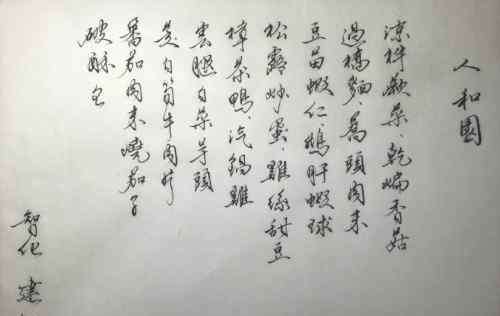 人和園
涼拌蕨菜、乾煸香菇
過橋麵、蕎頭肉末
豆苗蝦仁、鵝肝蝦球
松露炒蛋、雞絲甜豆
樟茶鴨、汽鍋雞
雲腿白菜芋頭
茭白筍牛肉片
番茄肉末燒茄子
破酥包
智化 建